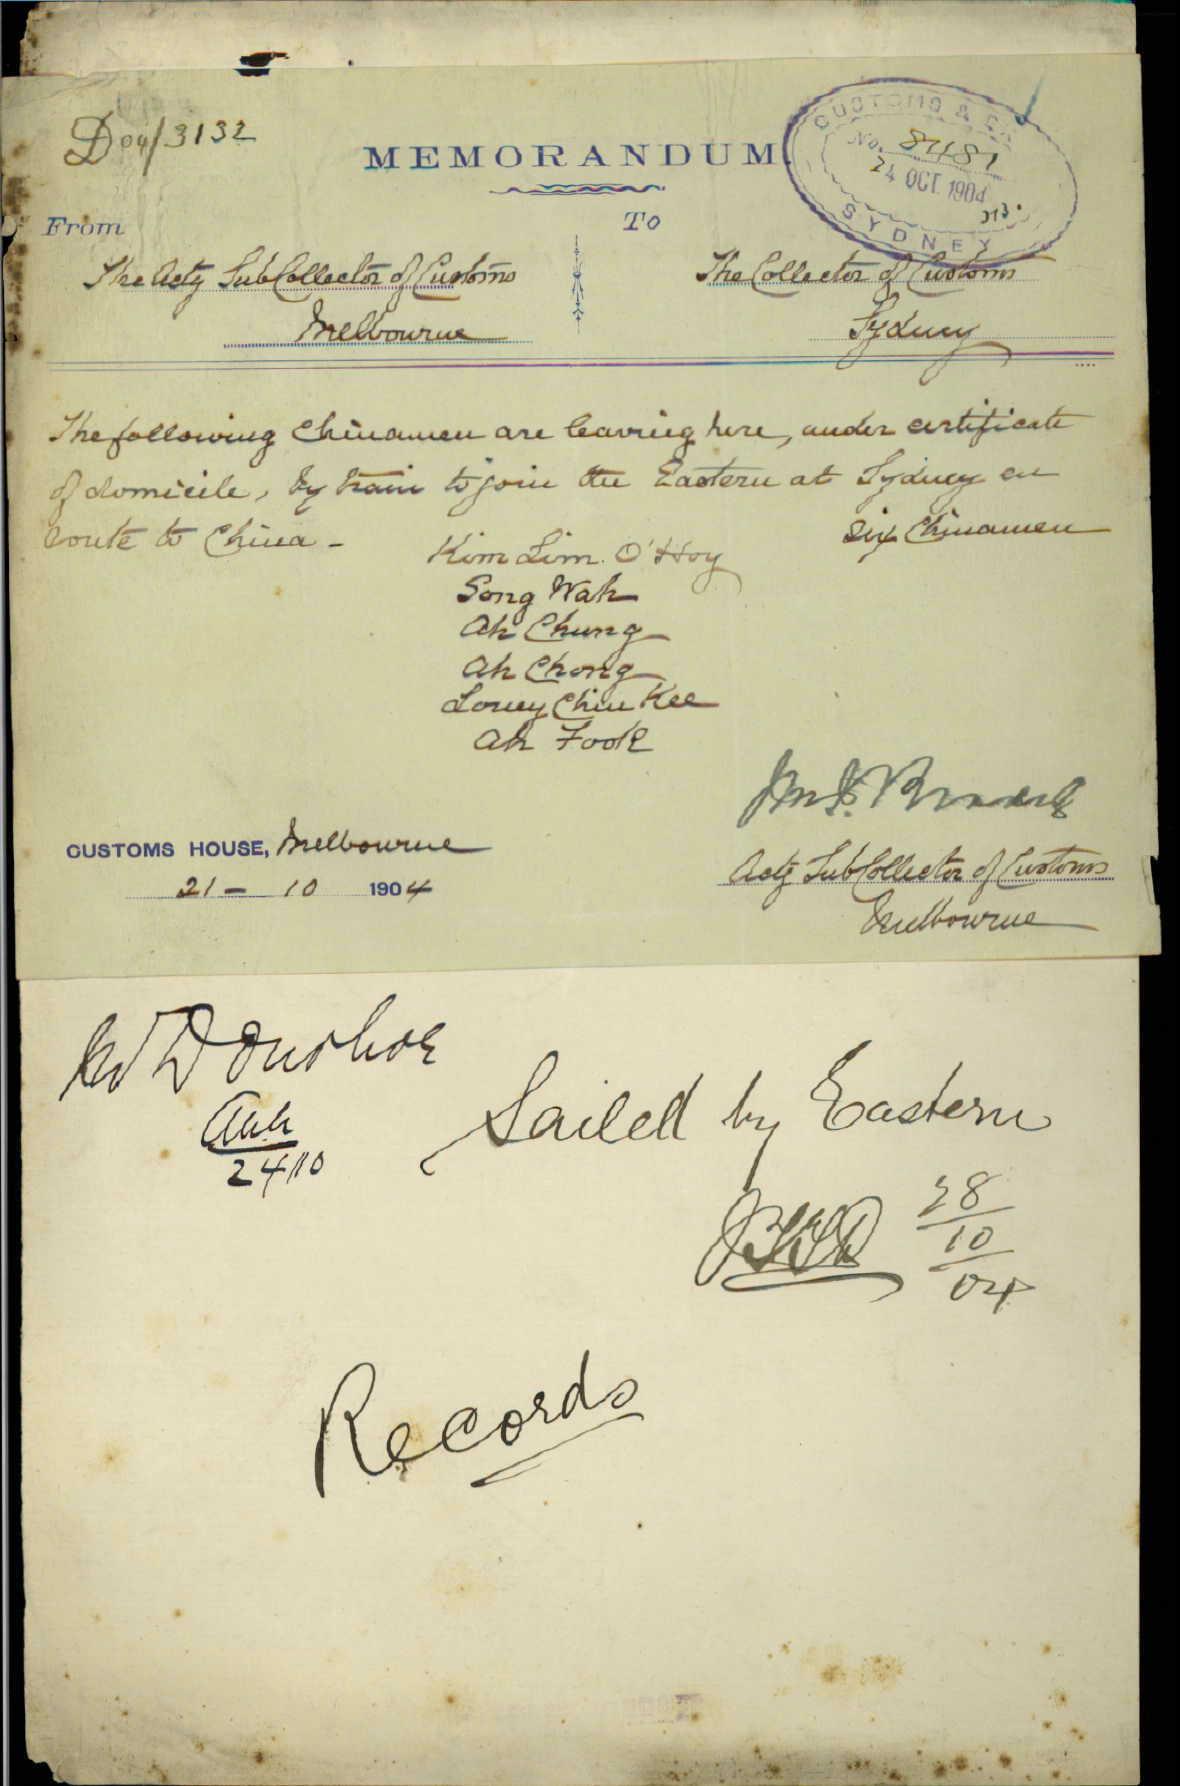 D 04/3132
MEMORANDUM.
CUSTOMS &
No. 8481
24 OCT. 1904
SYDNEY
From
To
The Actg SubCollector of Customs
Melbourne
The Collector of Customs
Sydney
The following Chinamen are leaving here, under certificate
of domicile, by train to join the Eastern at Sydney en
route to China -
six Chinamen
Kim Lim. O'Hoy
Song Wah
Ah Chung
Ah Chong
Louey Chin Kee
Ah Fook
CUSTOMS HOUSE, Melbourne
21 - 10 1904
Actg SubCollector of Customs
Melbourne
Donohoe
24/10
Sailed by Eastern
28
10
04
Records